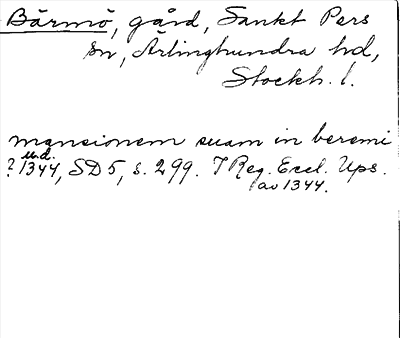 Bärmö, gård, Sankt Pers
sn, Ärlinghundra hd,
Stockh. l.
mansionem suam in beremi
u.d.
? 1344, SD 5, s. 299. I Reg. Eccl. Ups.
av 1344.